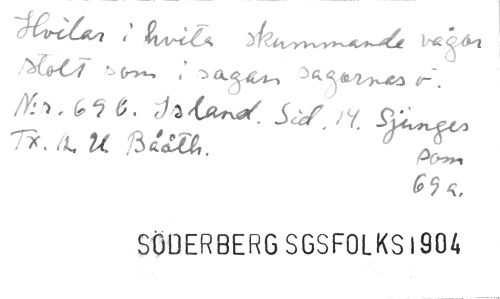 Hvilar i hvita skummande vågor
stolt som i sagan sagornas ö.
N:r. 69 b. Island. Sid. 14. Sjunges
som
Tx. A. U. Bååth.
69 a.
SÖDERBERG SGSFOLKS 1904